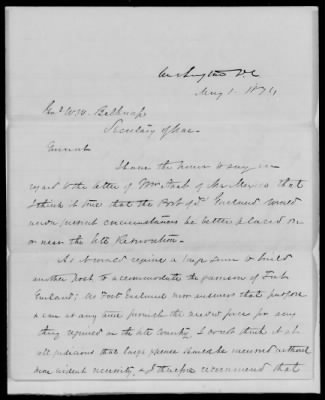 Washington D.C.
May 1. 1874
Genl W. W. Belknap
Secretary of War.
General
I have the honor to say in
regard to the letter of Mr of New Mexico that
I think it true that the Post of Ft Garland would
under present circumstances be better placed on
or near the Ute Reservation.
As it would require a large sum to build
another post to accommodate the garrison of Fort
Garland; As Fort Garland now answers that purpose
& can at any time furnish the needed force for any
thing required in the Ute Country, I do not think it at
all judicious that large expense should be incurred without
more evident necessity, & I therefore recommend that